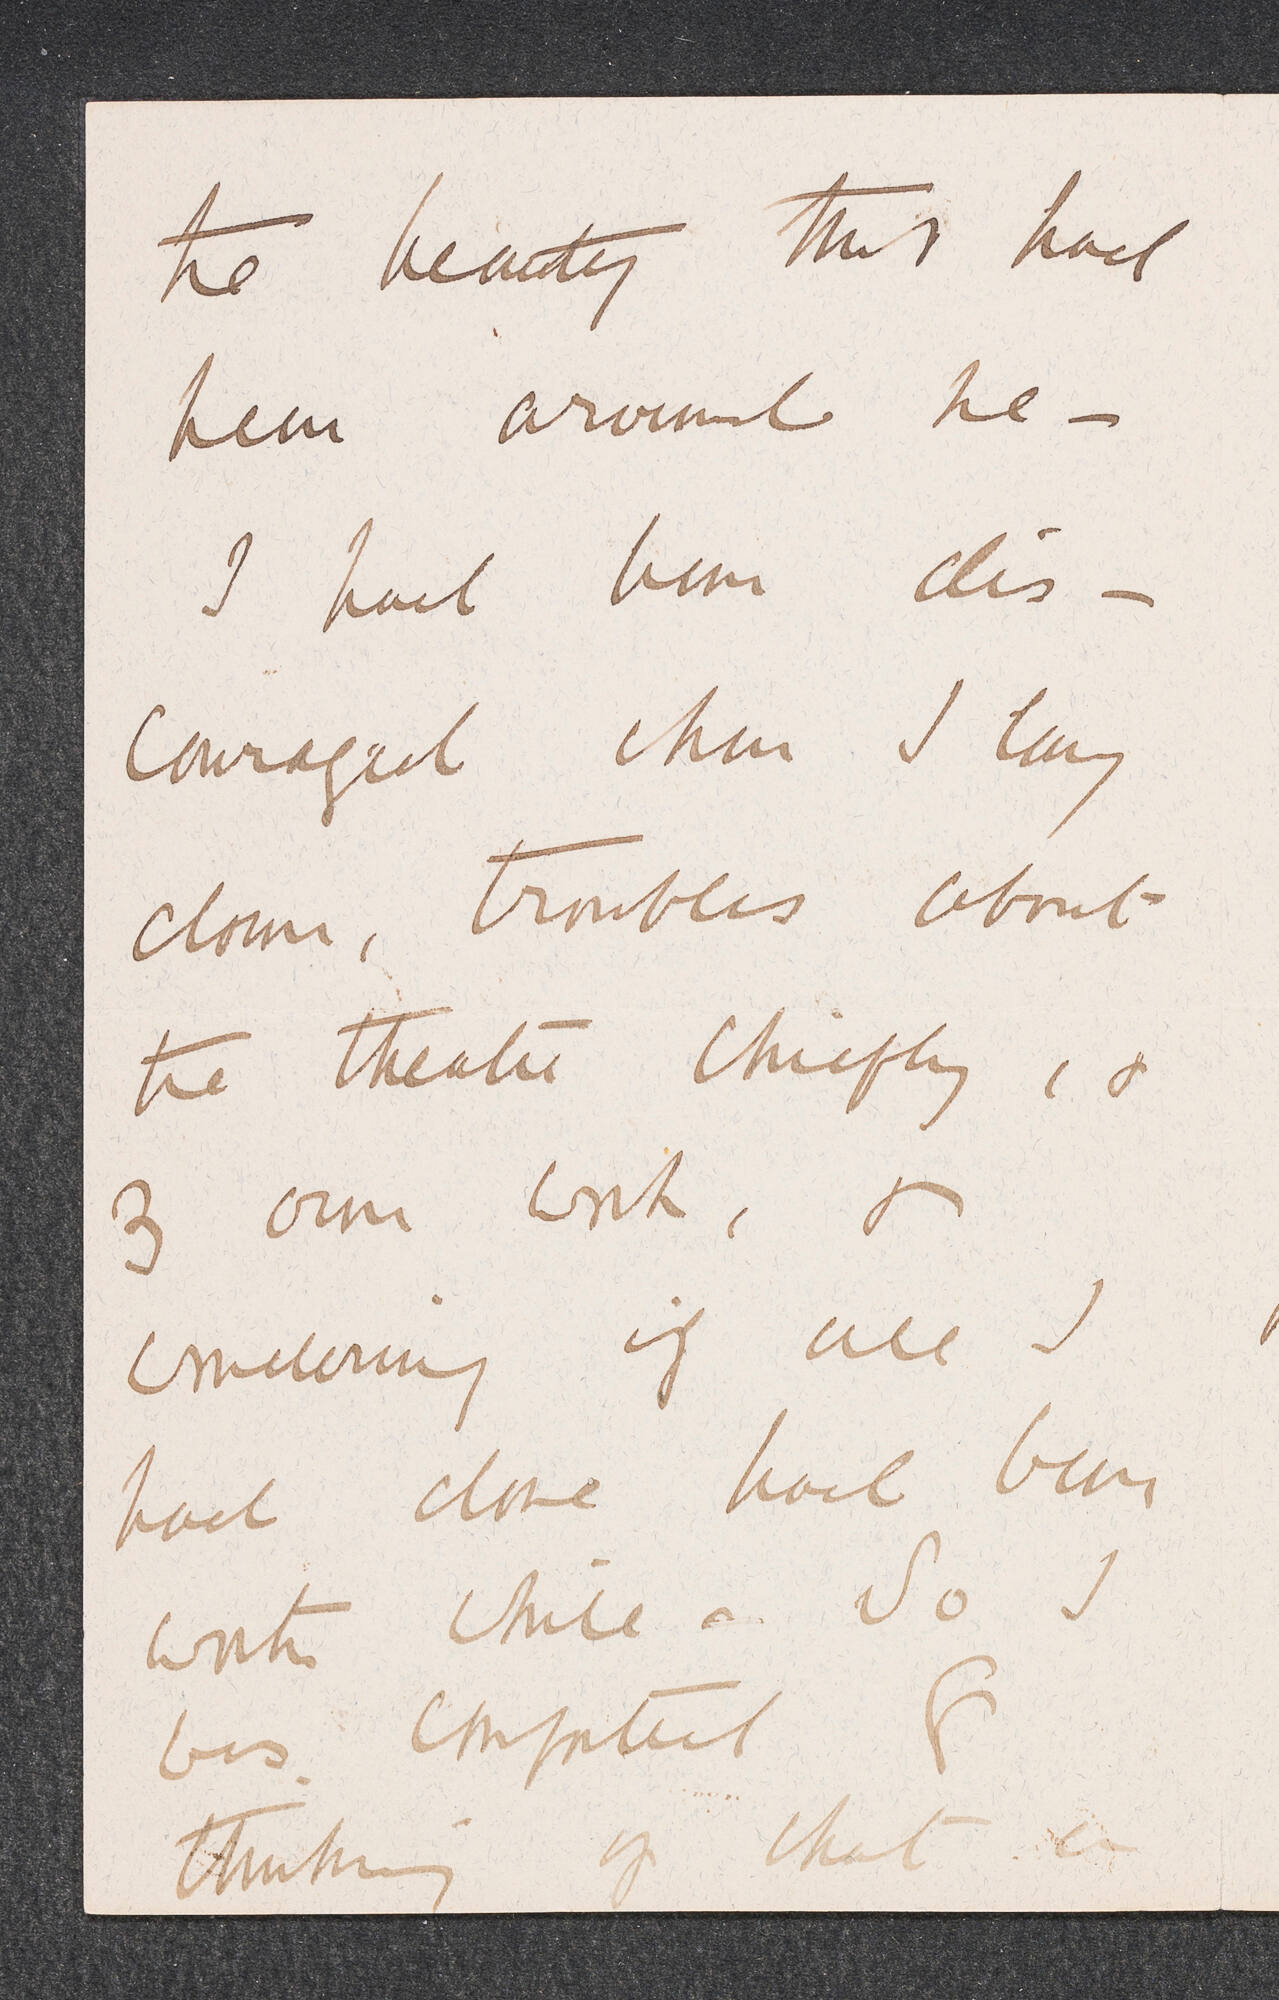 the beauty that had
been around me –
I had been dis –
couraged when I lay
down, troubles about
the theatre chiefly, &
my own work, &
wondering if all I
had done had been
worth while – So I
was comforted by
thinking of what a